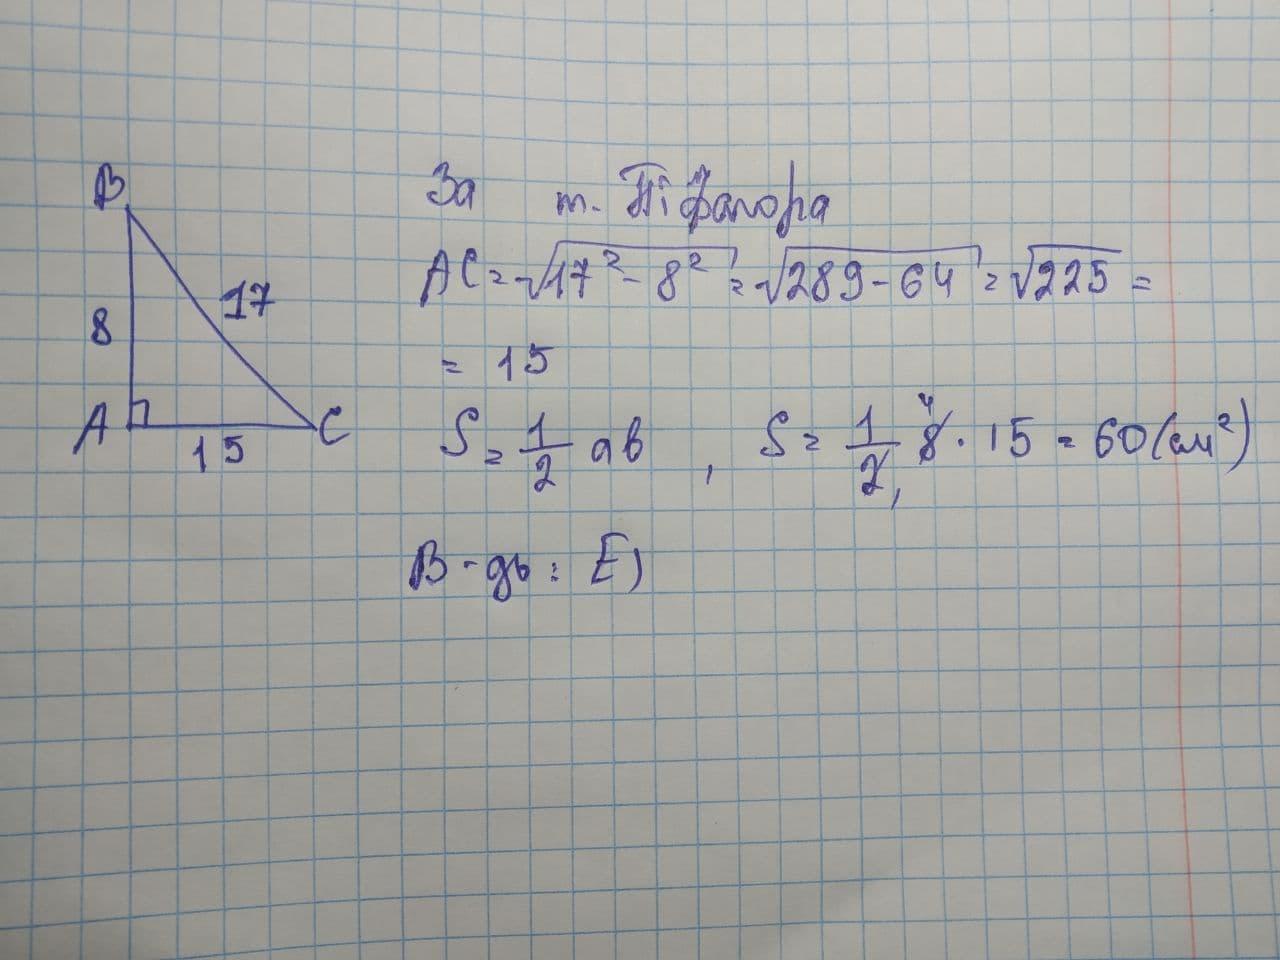 B
8
17
A
C
15
За т. Піфагора
AC = √17² - 8² = √289 - 64 = √225 =
= 15
S = 1/2 ab , S = 1/2 8 · 15 = 60 (см²)
4
1
В-дь: Е)